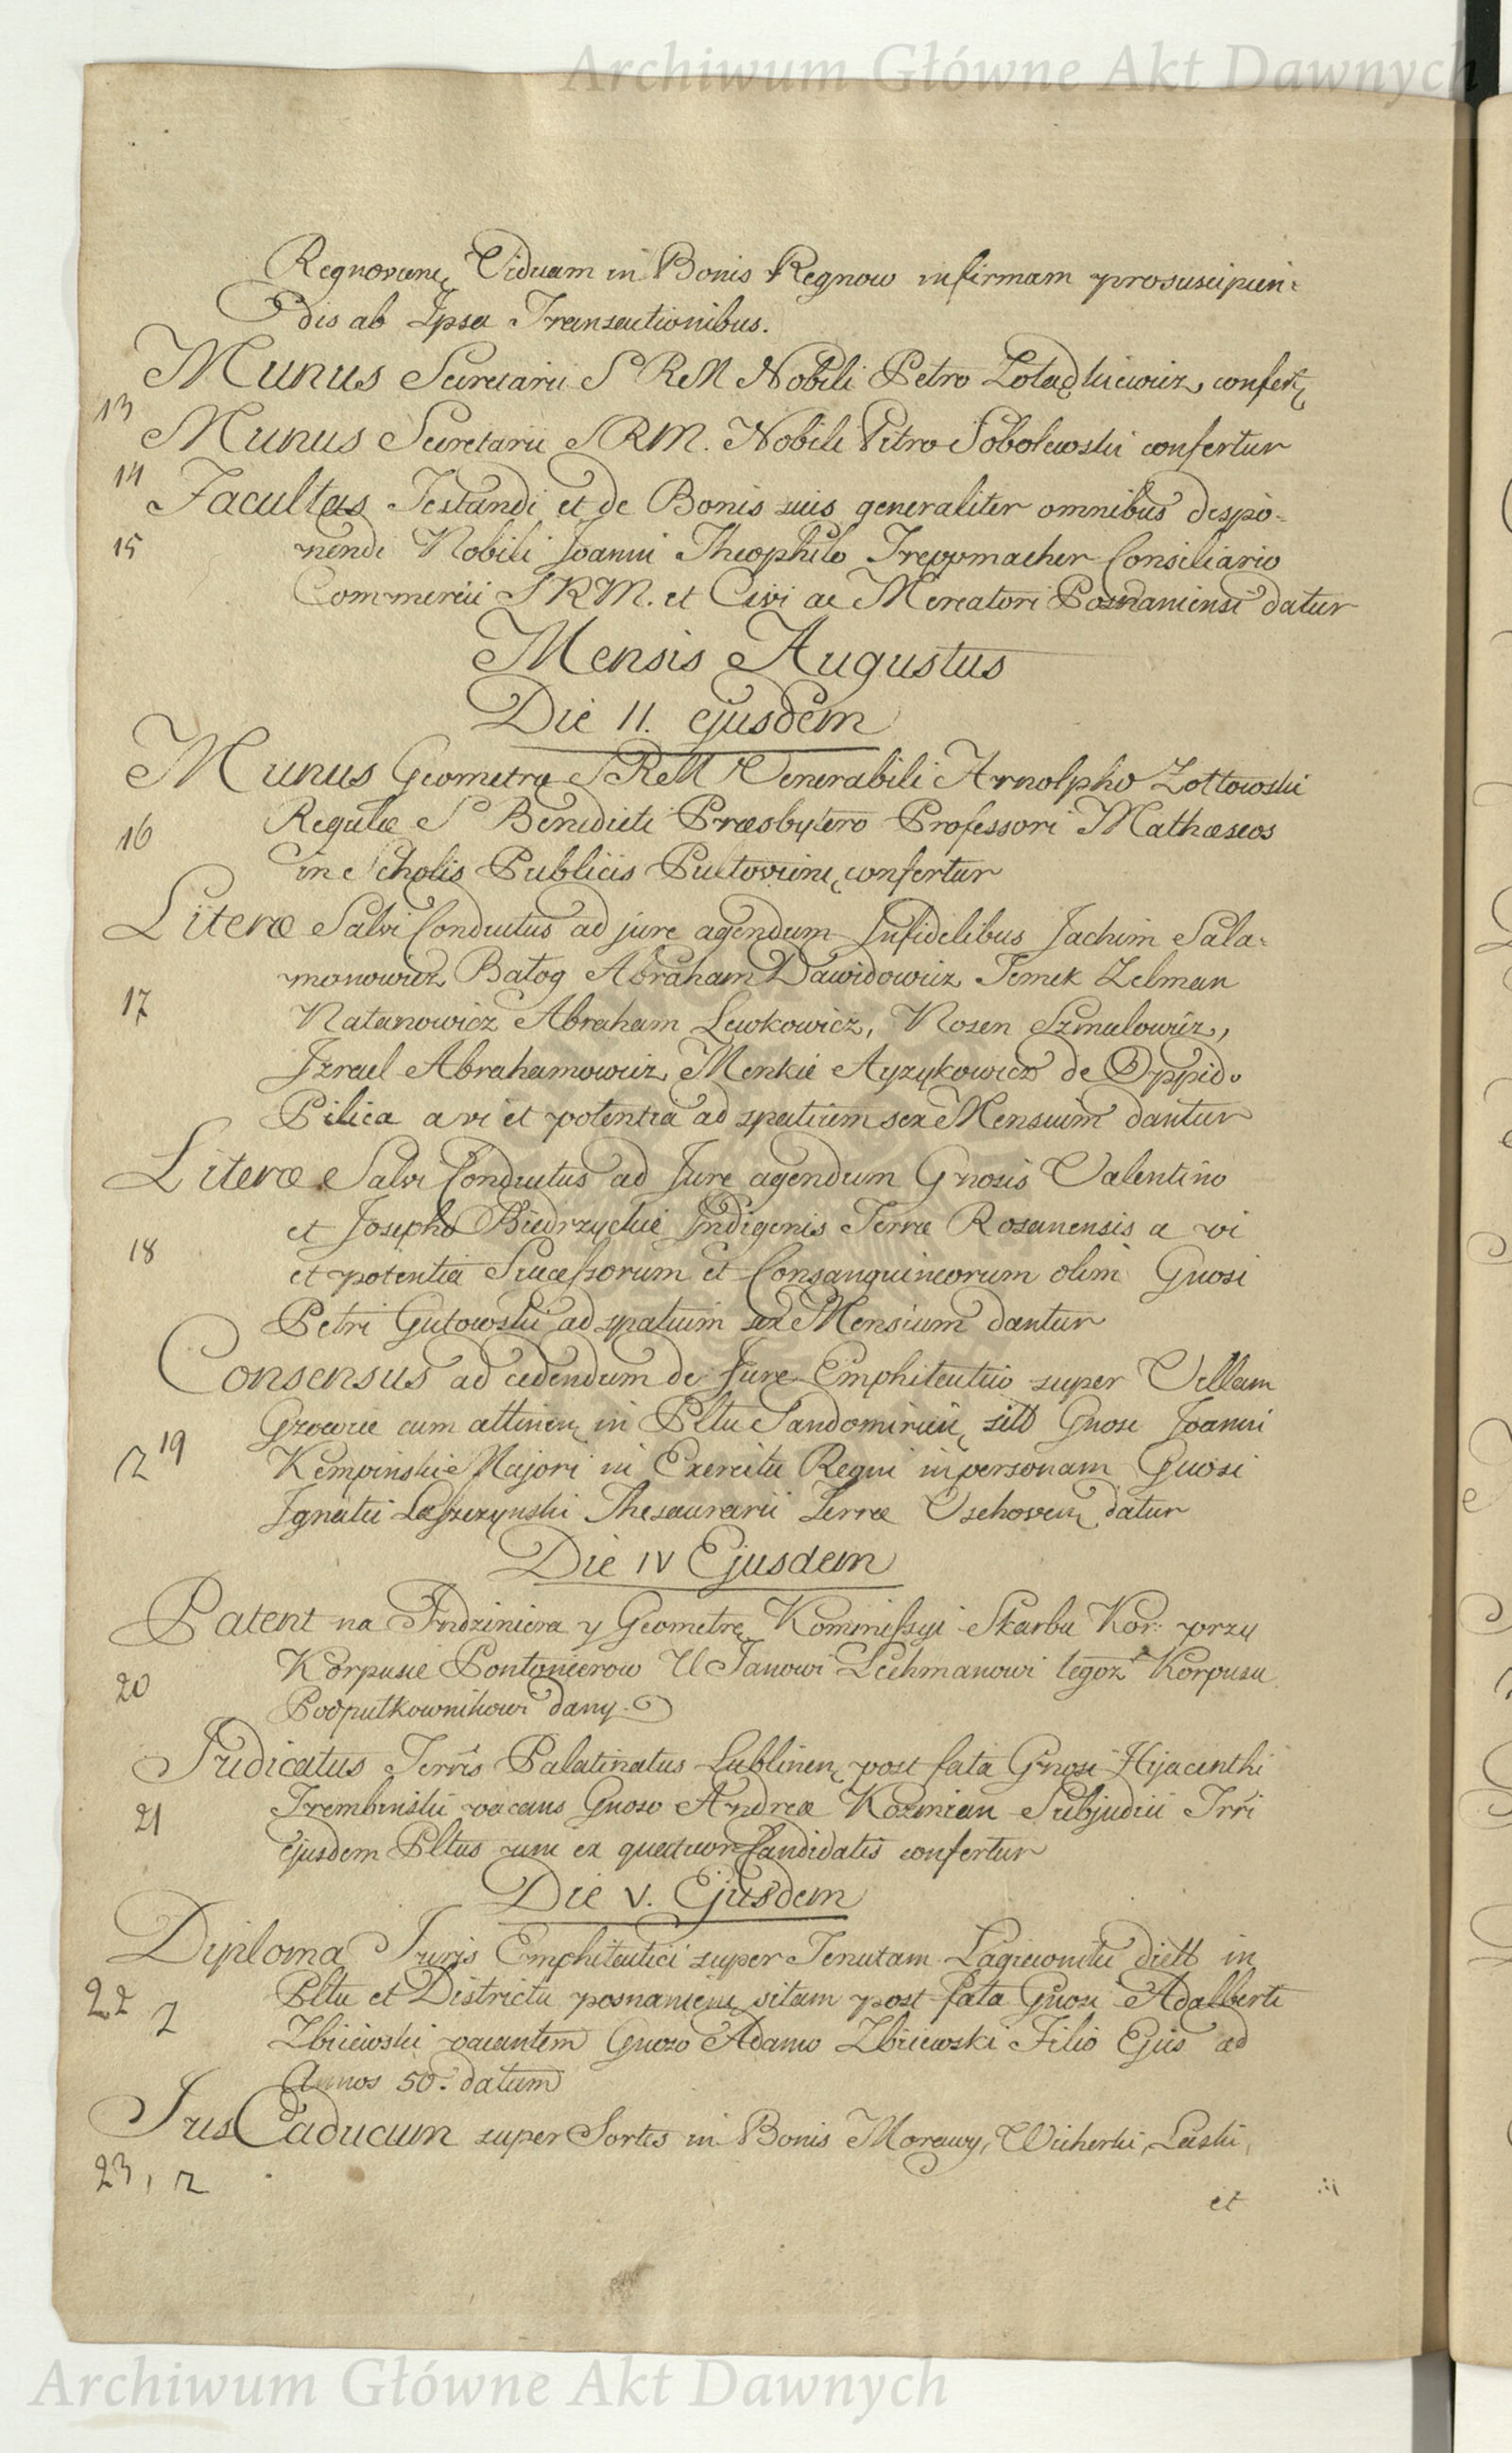 Archiwum Główne Akt Dawnych
Regnovien, Viduam in Bonis Regnow infirmam pro suscipien=
dis ab Ipsa Transactionibus.
Munus Secretarii S RM Nobili Petro Zolądkiewicz confert,
13
Munus Secretarii SRM. Nobili Petro Sobolewski confertur
14
Facultas Testandi et de Bonis suis generaliter omnibus dispo=
15
nendi Nobili Joanni Theophilo Treppmacher Consiliario
Commercii SRM. et Civi ac Mercatori Posnaniensi datur
Mensis Augustus
Die II. ejusdem
Munus Geometræ SRM Venerabili Arnolpho Zottowski
16
Regulæ S Benedicti Præsbytero Professori Mathæseos
in Scholis Publicis Pultovien, confertur
Literæ Salvi Conductus ad jure agendum Infidelibus Jachim Sala=
monowicz Batog Abraham Dawidowicz Temek Zelman
17
Natanowicz Abraham Lewkowicz, Nosen Szmulowicz,
Izrael Abrahamowicz Menkie Ayzykowicz de Oppido
Pilica a vi et potentia ad spatium sex Mensium dantur
Literæ Salvi Conductus ad Jure agendum Gnosis Valentino
et Josepho Biedrzyckie Indigenis Terræ Rosanensis a vi
18
et potentia Successorum et Consanguineorum olim Gnosi
Petri Gutowski ad spatium sex Mensium dantur
Consensus ad cedendum de Jure Emphiteutico super Villam
Grzowie cum attinen, in Pltu Sandomirien, sitt Gnoso Joanni
12 19
Kempinski Majori in Exercitu Regni in personam Gnosi
Ignatii Leszczynski Thesaurarii Terræ Vschoven, datur
Die IV Ejusdem
Patent na Indziniera y Geometrę Kommissyi Skarbu Kor: przy
Korpusie Pontonierow U Janowi Lechmanowi tegoż Korpusu
20
Podpułkownikowi dany.
Judicatus Terris Palatinatus Lublinen, post fata Gnosi Hijacinthi
Trembinski vacans Gnoso Andreæ Kozmian Subjudici Trri
21
Ejusdem Pltus uni ex quatuor Candidatis confertur
Die V. Ejusdem
Diploma Juris Emphiteutici super Tenutam Lagiewniki dictt in
22 2
Pltu et Districtu posnanien, sitam post fata Gnosi Adalberti
Zbiiewski vacantem Gnoso Adamo Zbiiewski Filio Ejus ad
Annos 50. datum
Jus Caducum super Sortes in Bonis Morawy, Wicherki, Laski,
23, 12
et
Archiwum Główne Akt Dawnych